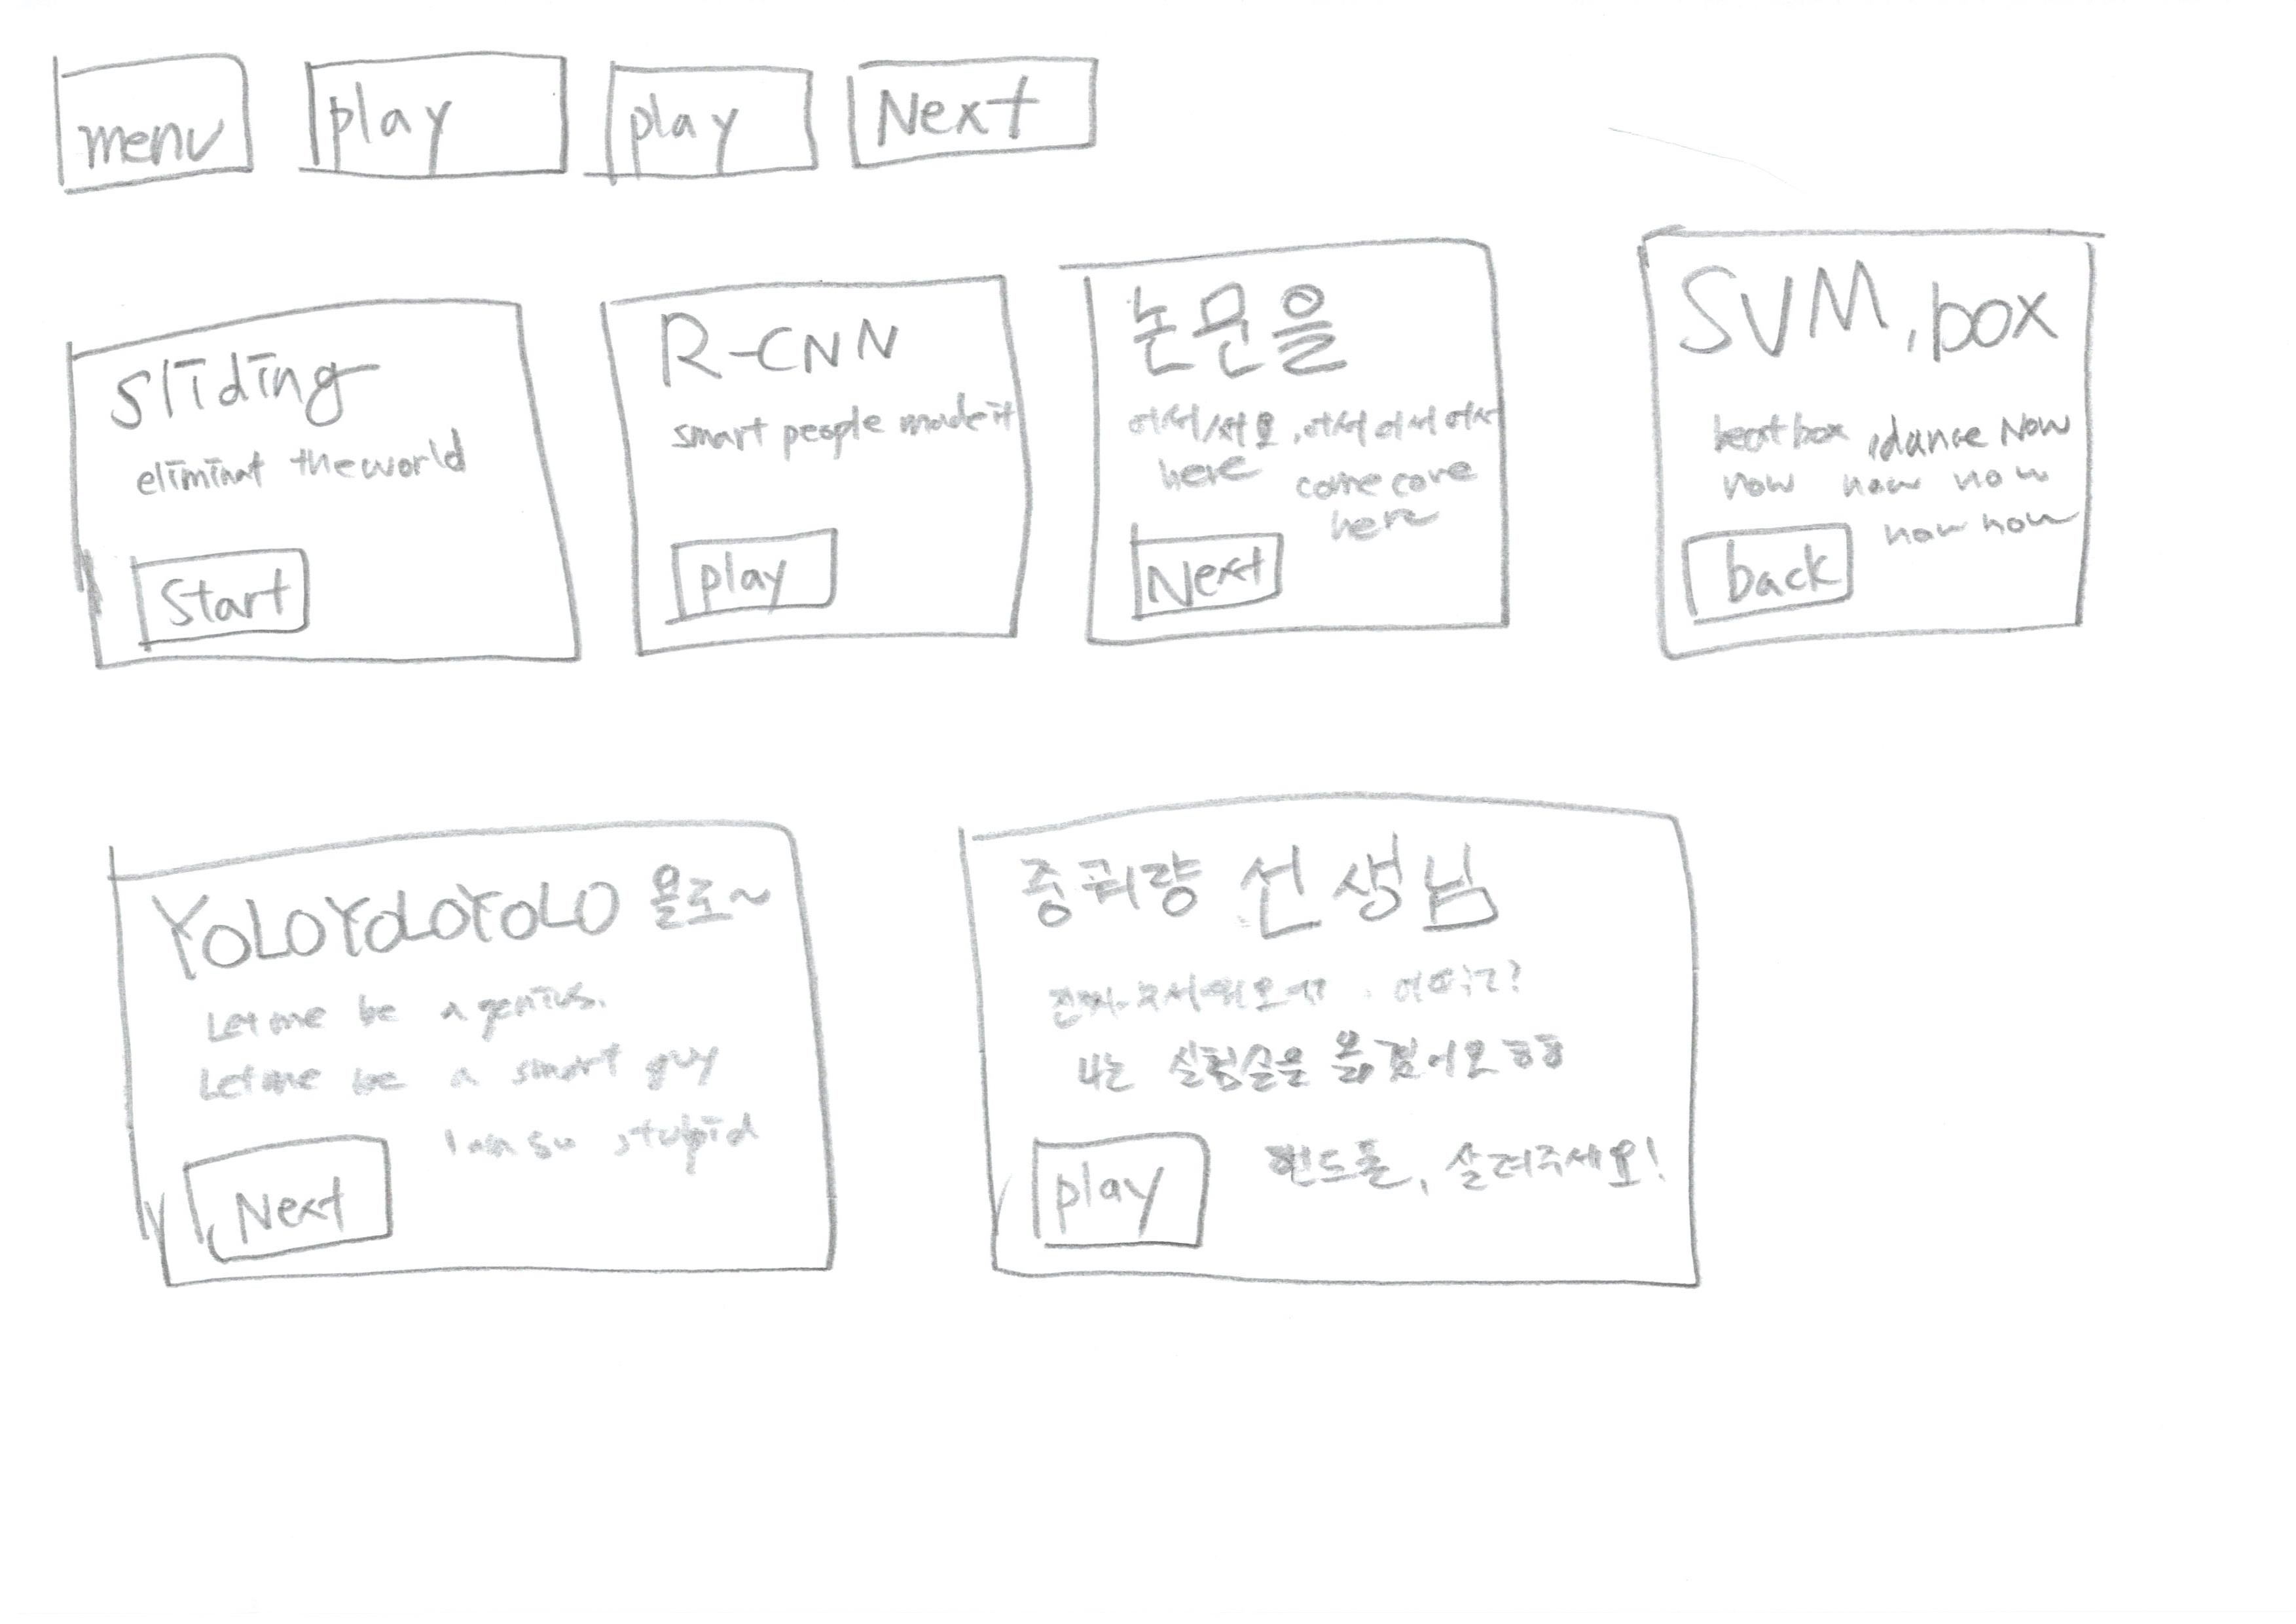 menu
play
play
Next
sliding
eliminat the world
Start
R-CNN
smart people made it
play
논문을
어서/서요, 어서 어서 어서
here come come
here
Next
SVM, box
beat box, dance Now
now now now
now now
back
YOLOYOLOYOLO 욜로~
Let me be a genius.
Let me be a smart guy
I am so stupid
Next
중궈량 선생님
나는 실험실을 옮겼어요 ㅎㅎ
핸드폰, 살려주세요!
play